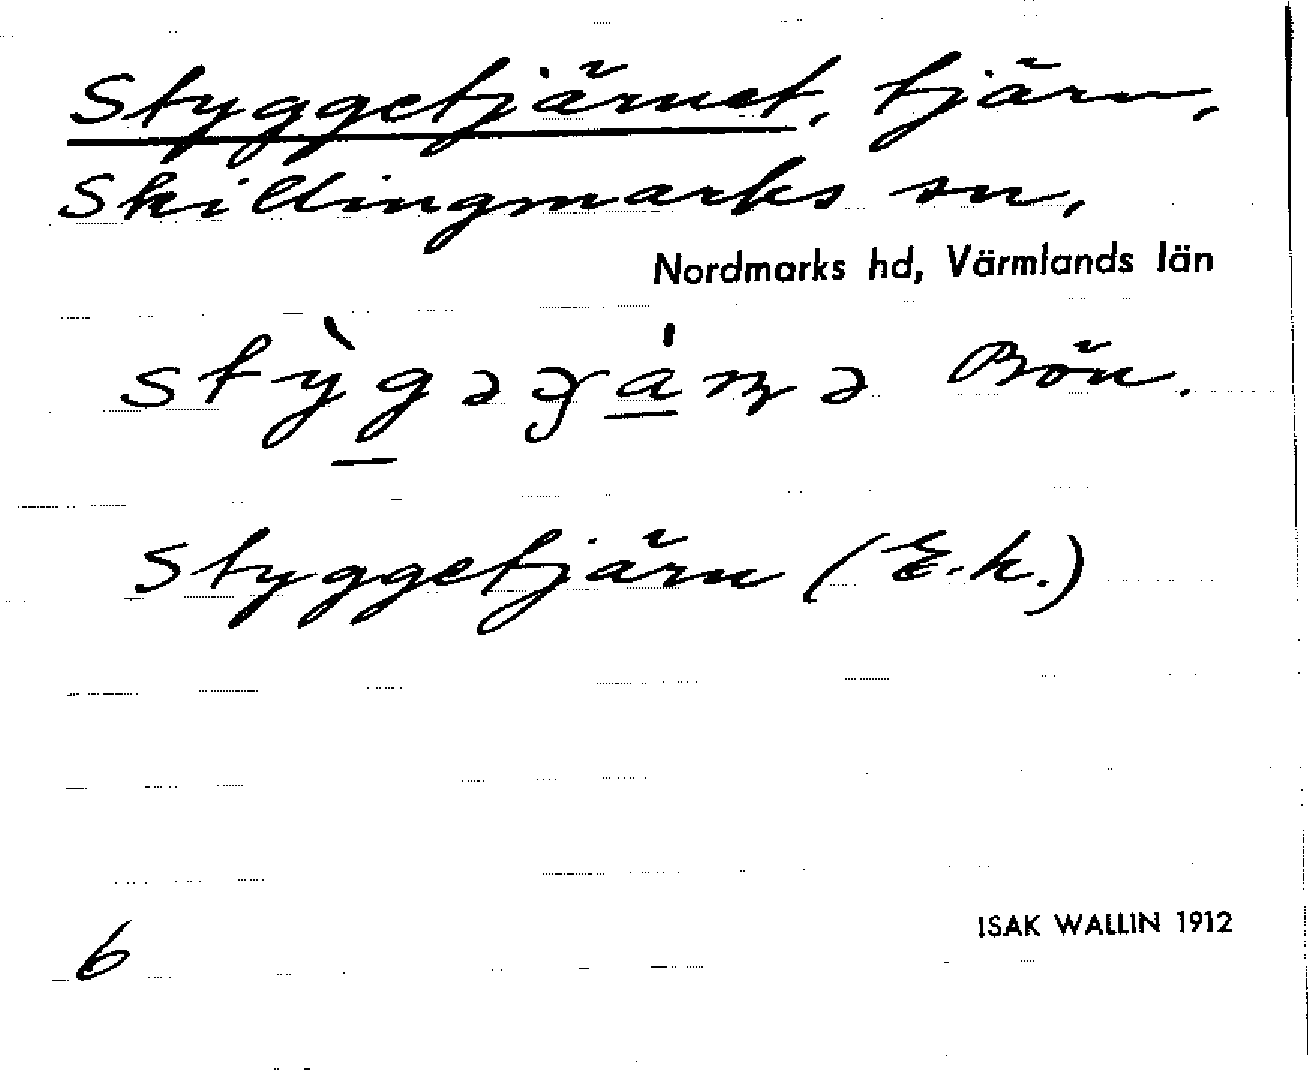 Styggetjärnet, tjärn,
Skillingmarks sn,
Nordmarks hd, Värmlands län
Bön.
Styggetjärn (E.k.)
6
ISAK WALLIN 1912